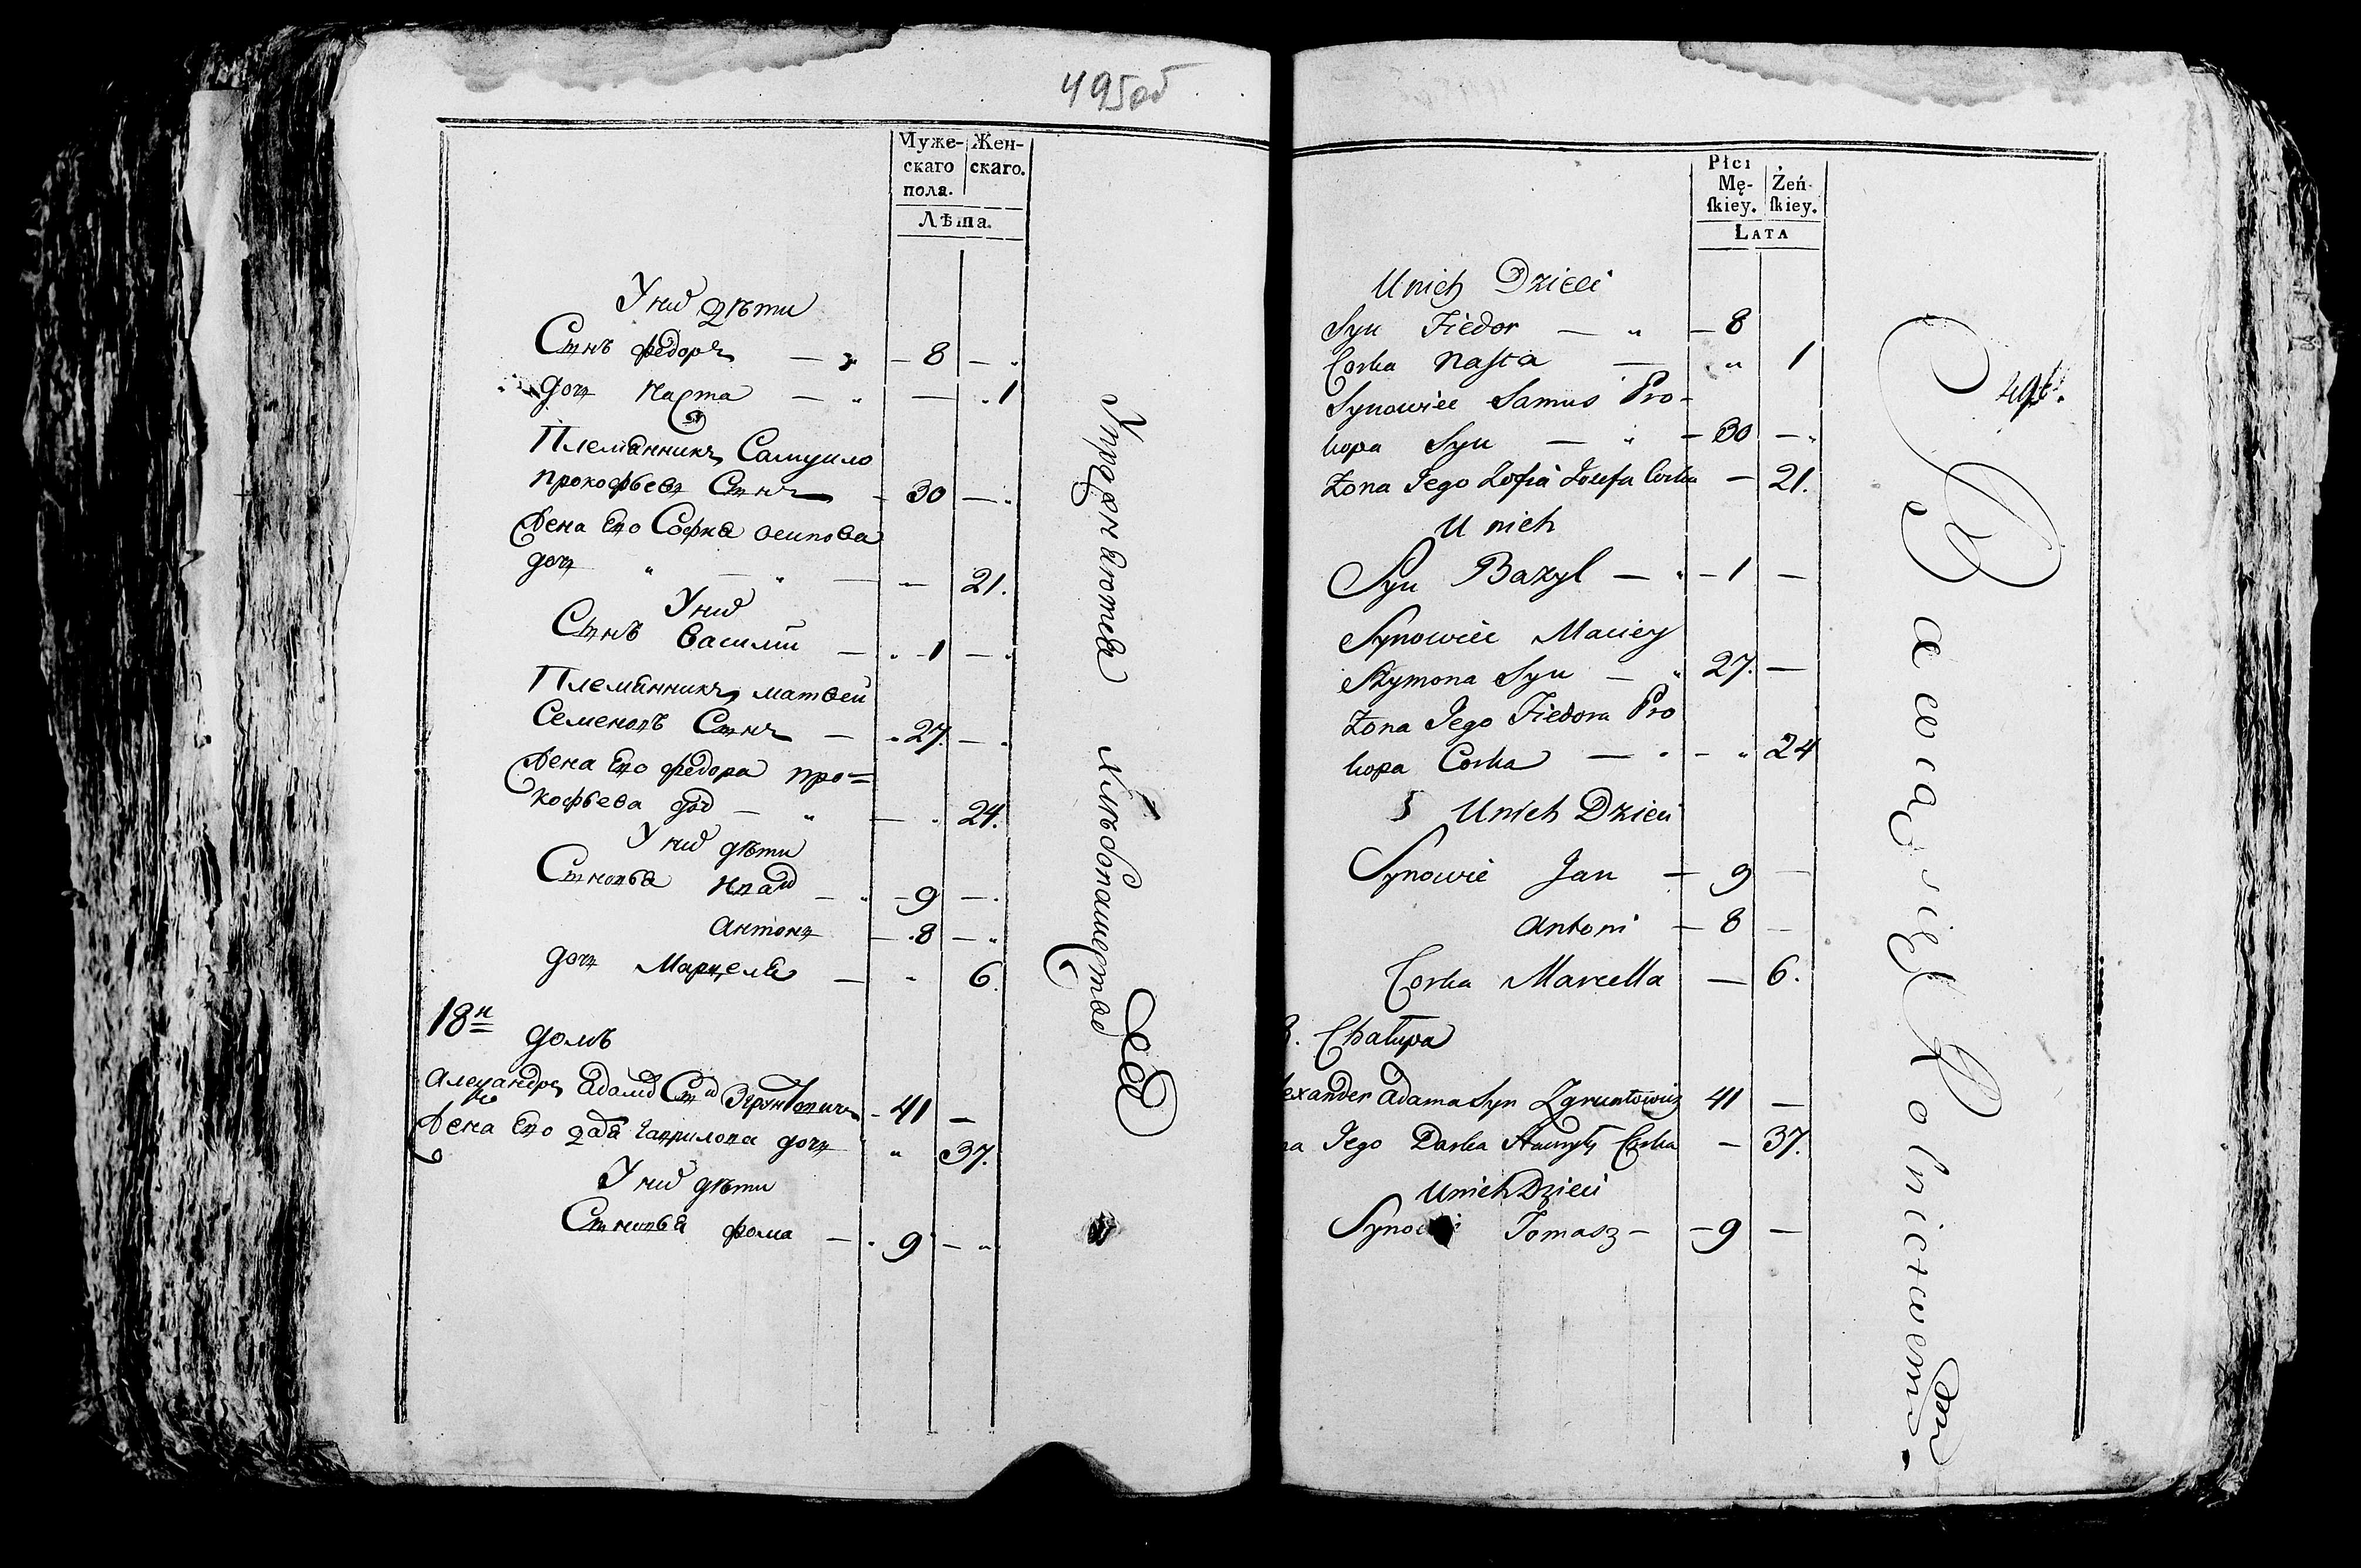 495об
Муже-
скаго
пола.
Жен-
скаго.
Лѣта.
У них дѣти
Сынъ Федоръ — „ — 8 — „
дочь Наста — „ — „ 1
Племянникъ Самуило
Прокофьевъ Сынъ — 30 — „
Жена Его София осипова
дочь „ — „ — „ 21.
У них
Сынъ Василій — „ 1 — „
Племянникъ матвей
Семеновъ Сынъ — „ 27. — „
Жена Его Федора про=
кофьева доч — „ — „ 24.
У них дѣти
Сыновья Иван — „ — 9 — „
антонъ — 8 — „
дочь Марцеля — „ 6.
18й домъ
Александръ Адам Сын Згрунтович — 41 —
Жена Его Гаврилова дочь „ 37.
У них дѣти
Сыновья фома — „ 9 — „
Упражняются Хлѣбопашеством
Płci
Mę-
ſkiey.
Żeń-
ſkiey.
LATA
496.
U nich Dzieci
Syn Fiedor — „ — 8
Corka Nasta — „ 1
Synowiec Samus Pro-
kopa Syn — „ — 30 — „
Zona Jego Zofia Jozefa Corka — 21.
U nich
Syn Bazyl — „ — 1 —
Synowiec Maciey
Szymona Syn — „ 27. —
Zona Jego Fiedora Pro
kopa Corka — „ — „ 24
U nich Dzieci
Synowie Jan — 9 —
Antoni — 8 —
Corka Marcella — 6.
8. Chałupa
lexander Adama Syn Zgruntowicz 41 —
na Jego Darka Corka — 37.
U nich Dzieci
Synowie Tomasz — — 9 —
Bawią się Rolnictwem.